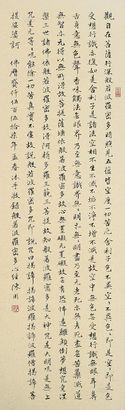 觀自在菩薩行深般若波羅蜜多時照見五蘊皆空度一切苦厄舍利子色不異空空不異色色即是空空即是色
受想行識亦復如是舍利子是諸法空相不生不滅不垢不淨不增不減是故空中無色無受想行識無眼耳鼻
舌身意無色聲香味觸法無眼界乃至無意識界無無明亦無無明盡乃至無老死亦無老死盡無苦集滅道
無智亦無得以無所得故菩提薩埵依般若波羅蜜多故心無罣礙無罣礙故無有恐怖遠離顛倒夢想究竟涅
槃三世諸佛依般若波羅蜜多故得阿耨多羅三藐三菩提故知般若波羅蜜多是大神咒是大明咒是無上咒
是無等等咒能除一切苦真實不虛故說般若波羅蜜多咒即說咒曰揭諦揭諦波羅揭諦波羅僧揭諦菩
提薩婆訶 佛曆貳仟伍佰 年孟春沐手敬錄般若波羅蜜多心經